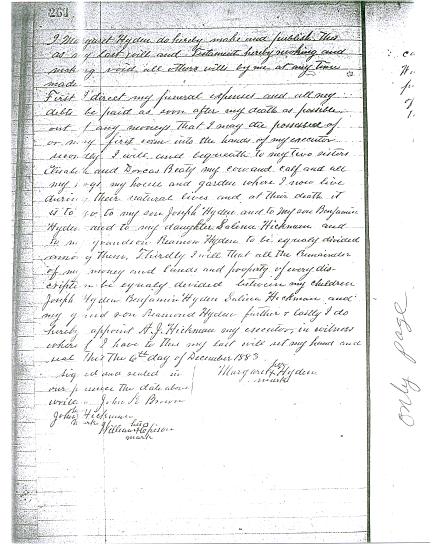 261
I Ma garet Hyden do hereby make and publish this
as my last will and Testament hereby revoking and
making void all others wills by me at any time
made
First I direct my funeral expenses and all my
debts be paid as soon after my death as possible
out of any moneys that I may die possessed of
or may first come into the hands of my executor
secondly I will and bequeath to my two sisters
Elizabeth and Dorcas Beaty my cow and calf and all
my hogs my house and garden where I now live
during their natural lives and at their death it
is to go to my son Joseph Hyden and to my son Benjamin
Hyden and to my daughter Salina Hickman and
to my grandson Reamon Hyden to be equaly divided
among them, Thirdly I will that all the remainder
of my money and lands and property of every dis-
cription be equaly divided between my children
Joseph Hyden Benjamin Hyden Salina Hickman and
my grand son Reamond Hyden further & lastly I do
hereby appoint H. J. Hickman my executor, in witness
where of I have to this my last will set my hand and
seal this The 6th day of December 1883
Signed and sealed in
our presence the date above
written
Margaret her Hyden
mark
John R Brown
John Hickman
mark
William his
mark
only page